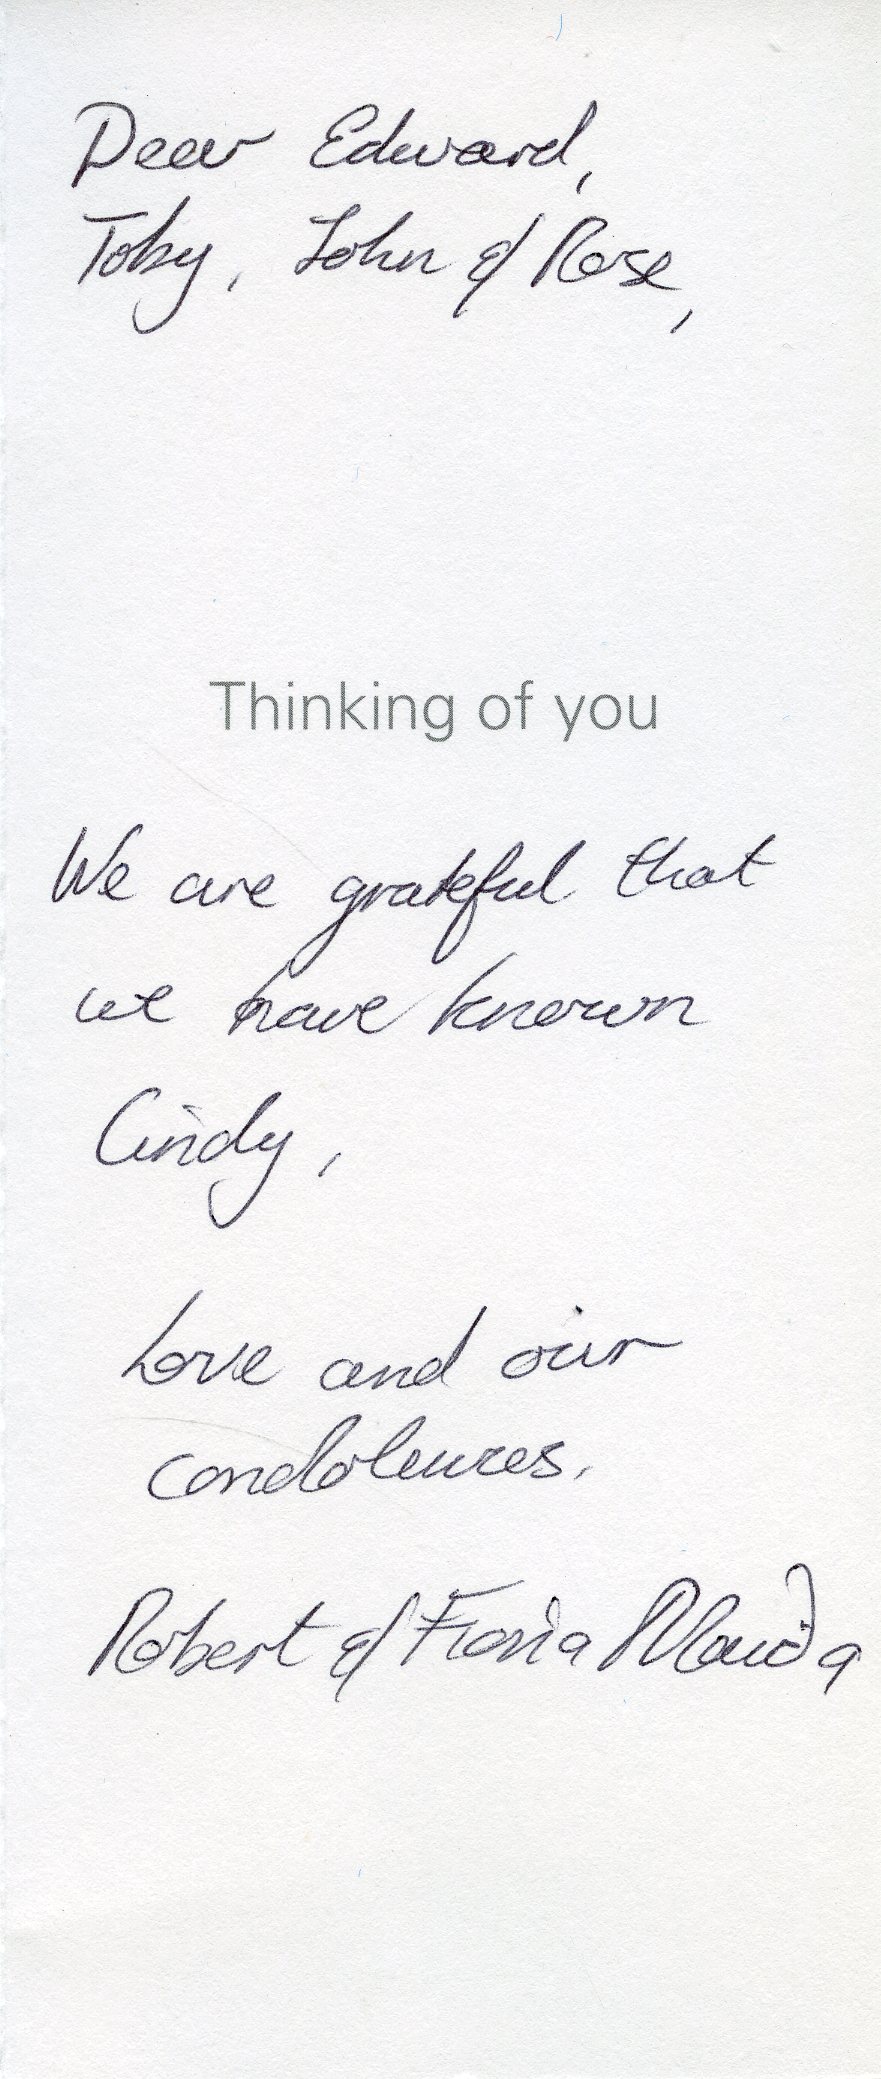 Dear Edward,
Toby, John & Rose,
Thinking of you
We are grateful that
we have known
Cindy,
Love and our
condolences.
Robert & Fiona